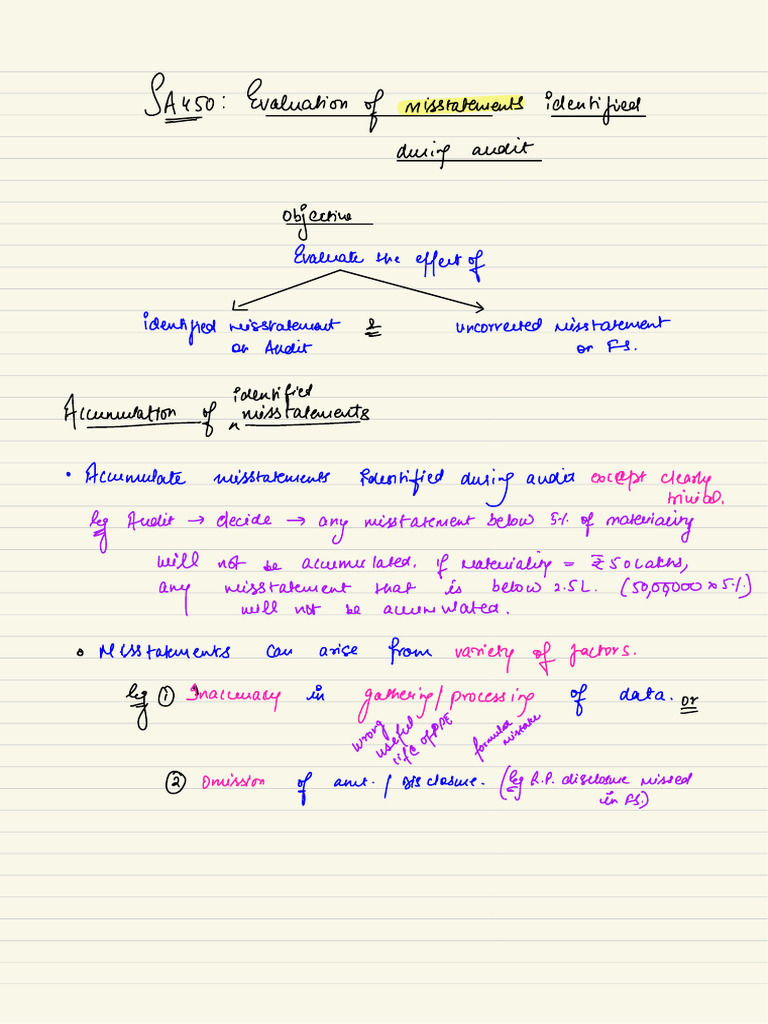 SA450: Evaluation of misstatements identified
during audit
Objective
Evaluate the effect of
identified misstatement & uncorrected misstatement
on Audit on FS.
identified
Accumulation of misstatements
• Accumulate misstatements identified during audit except clearly
trivial.
eg Audit → decide → any misstatement below 5% of materiality
will not be accumulated. if materiality = ₹50 Lakhs,
any misstatement that is below 2.5L. (50,00,000 × 5%)
will not be accumulated.
• Misstatements can arise from variety of factors.
eg ① Inaccuracy in gathering/processing of data. or
wrong
useful
life of PPE
formula
mistake
② Omission of amt./Disclosure. (eg R.P. disclosure missed
in FS.)